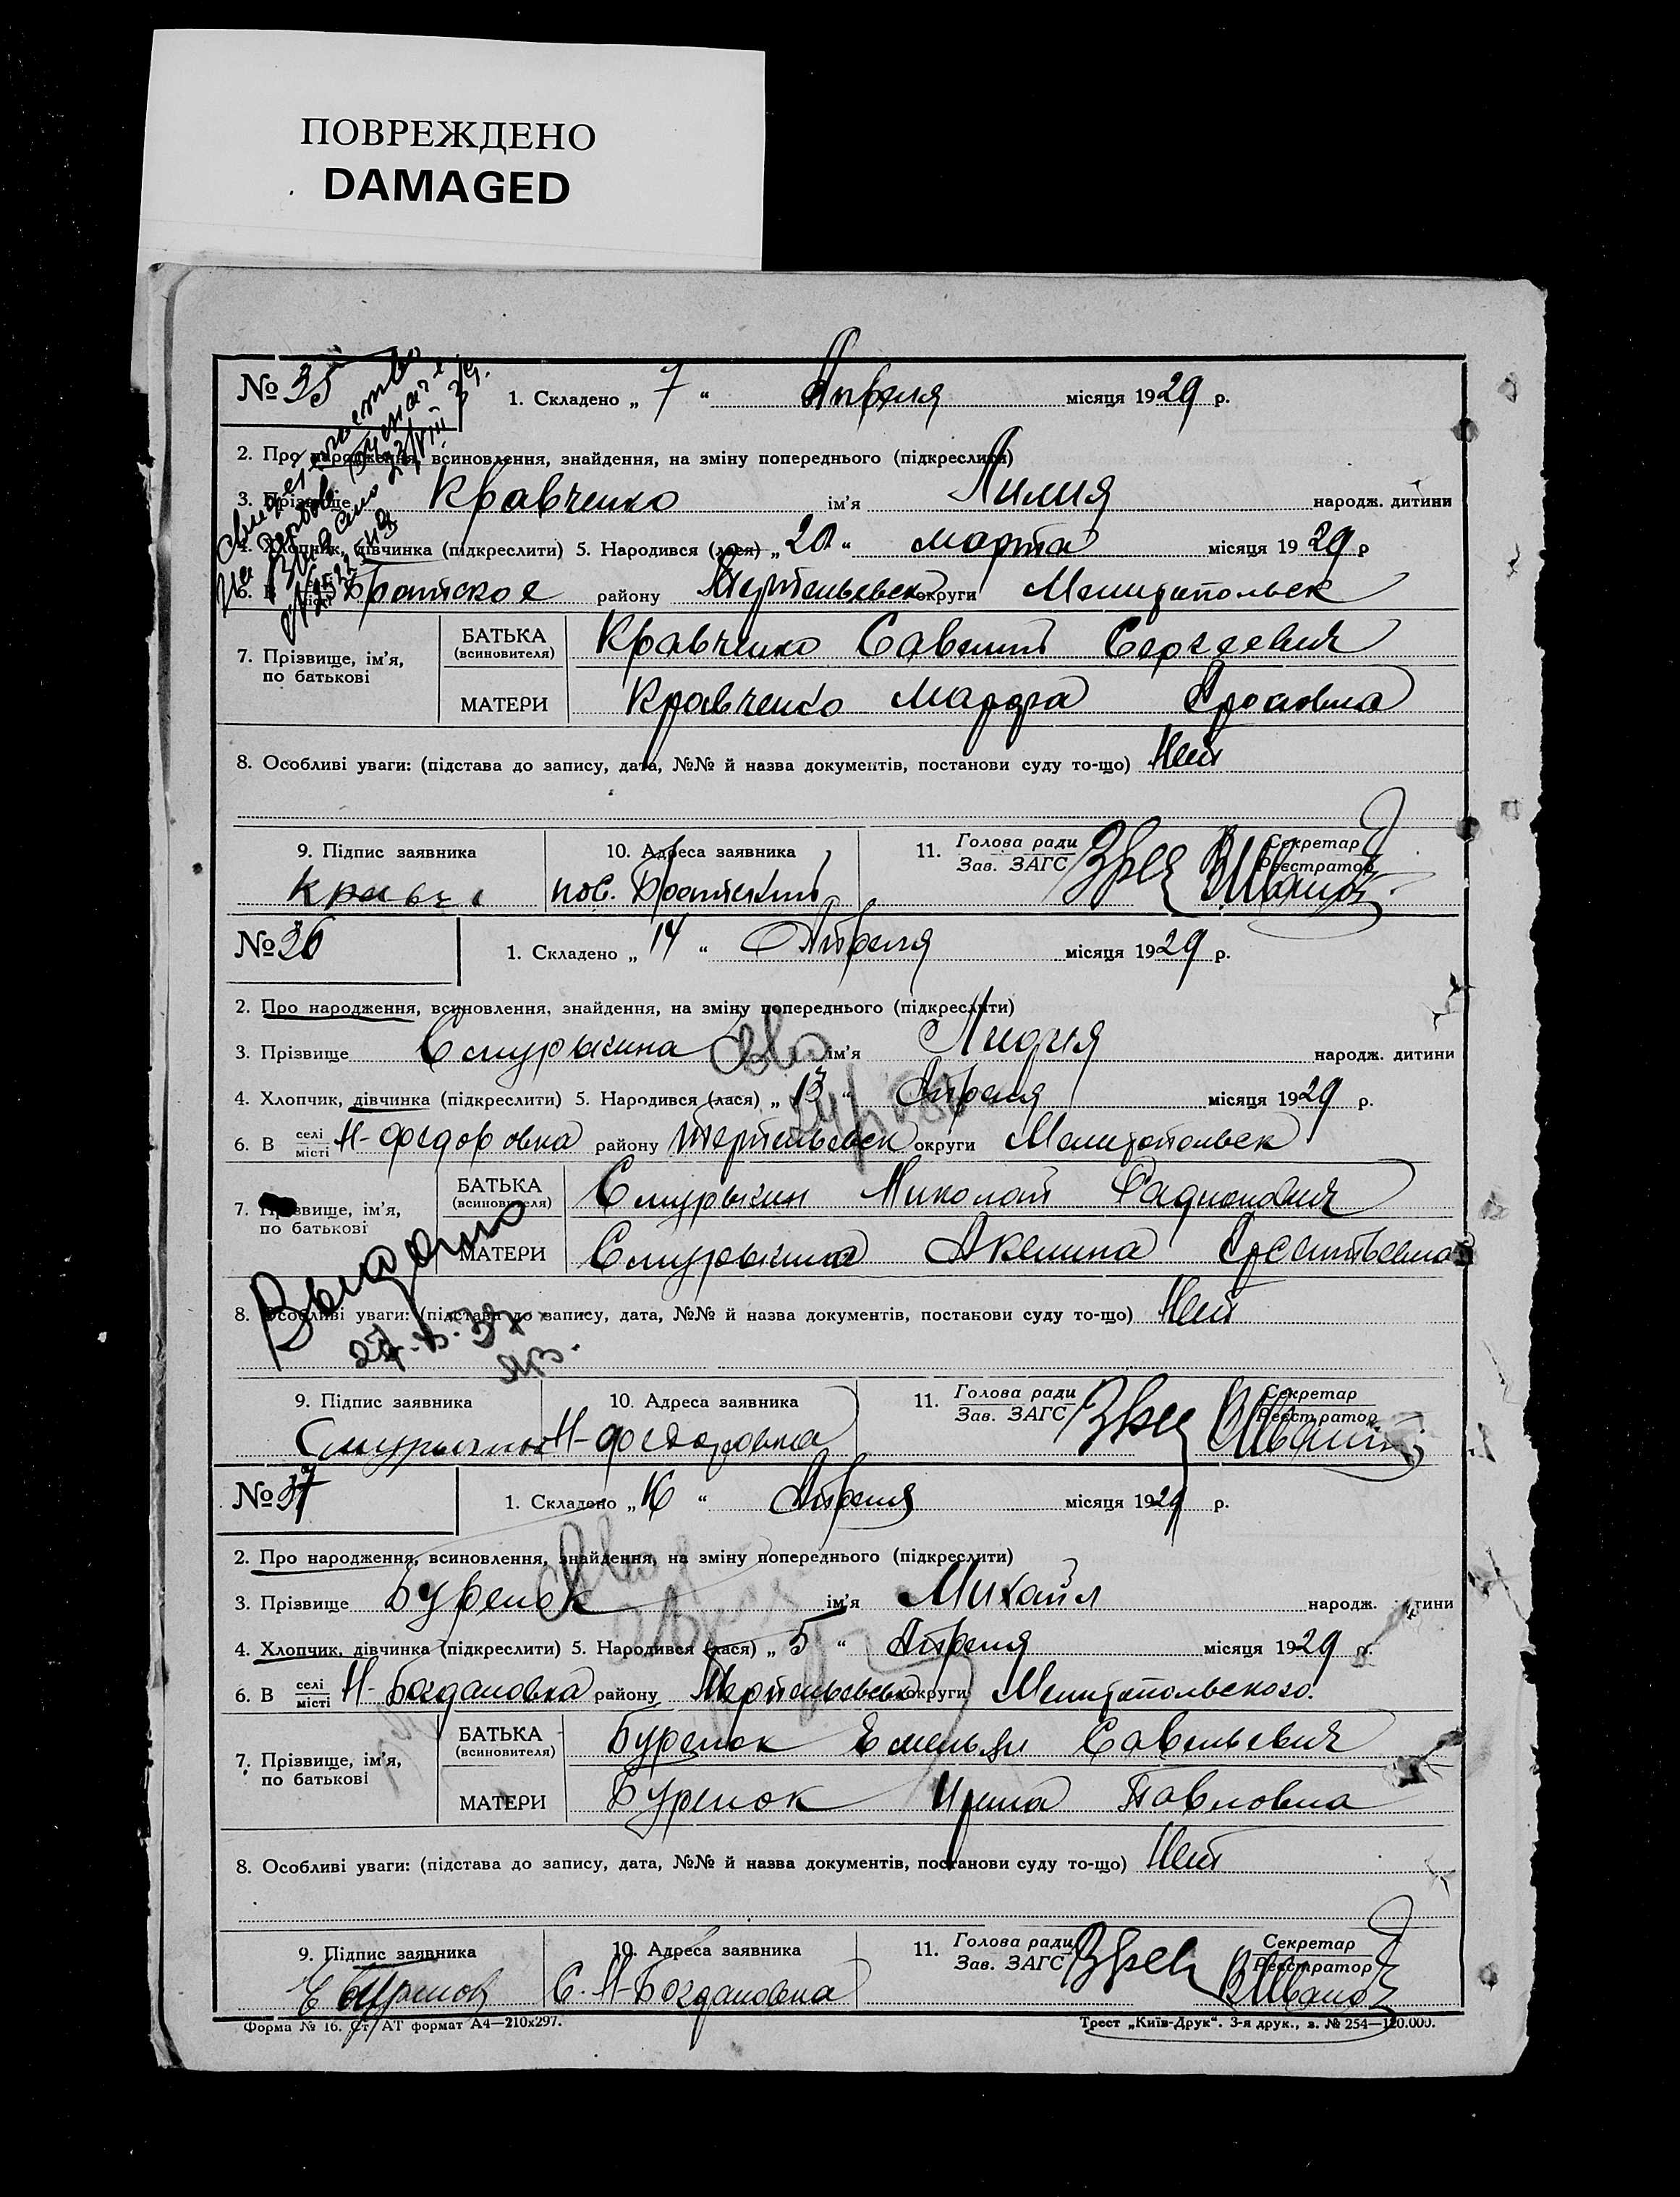 ПОВРЕЖДЕНО
DAMAGED
№ 35
1. Складено „ 7 “ Апреля місяця 1929 р.
2. Про народження, всиновлення, знайдення, на зміну попереднього (підкреслити)
3. Прізвище Кравченко ім'я Лилия народж. дитини
4. Хлопчик, дівчинка (підкреслити) 5. Народився (лася) „ 20 “ марта місяця 1929 р
6. В Братское району округи Мелитопольск
7. Прізвище, ім'я, по батькові
БАТЬКА (всиновителя) Кравченко Савелий Сергеевич
МАТЕРИ Кравченко Марфа
8. Особливі уваги: (підстава до запису, дата, №№ й назва документів, постанови суду то-що) Нет
9. Підпис заявника
10. Адреса заявника
11. Голова ради Зав. ЗАГС
Секретар Реєстратор
пос. Братский
№ 36
1. Складено „ 14 “ Апреля місяця 1929 р.
2. Про народження, всиновлення, знайдення, на зміну попереднього (підкреслити)
3. Прізвище Смурыгина ім'я Лидия народж. дитини
4. Хлопчик, дівчинка (підкреслити) 5. Народився (лася) „ 13 “ Апреля місяця 1929 р.
6. В селі місті Н-Федоровка району округи Мелитопольск
7. Прізвище, ім'я, по батькові
БАТЬКА (всиновителя) Смурыгин Николай Радионович
МАТЕРИ Смурыгина Акелина
Выдано
8. Особливі уваги: (підстава до запису, дата, №№ й назва документів, постанови суду то-що) Нет
9. Підпис заявника
10. Адреса заявника
11. Голова ради Зав. ЗАГС
Секретар Реєстратор
Н-Федоровка
№ 37
1. Складено „ “ Апреля місяця 1929 р.
2. Про народження, всиновлення, знайдення, на зміну попереднього (підкреслити)
3. Прізвище Буренок ім'я Михаил народж. дитини
4. Хлопчик, дівчинка (підкреслити) 5. Народився (лася) „ 5 “ Апреля місяця 1929 р.
6. В селі місті Н-Богдановка району округи Мелитопольского
7. Прізвище, ім'я, по батькові
БАТЬКА (всиновителя) Буренок Емельян Савельевич
МАТЕРИ Буренок Ирина Павловна
8. Особливі уваги: (підстава до запису, дата, №№ й назва документів, постанови суду то-що) Нет
9. Підпис заявника
10. Адреса заявника
11. Голова ради Зав. ЗАГС
Секретар Реєстратор
С. Н-Богдановка
Форма № 16. Ст. АТ формат А4—210х297.
Трест „Київ-Друк“. 3-я друк., з. № 254—120.000.